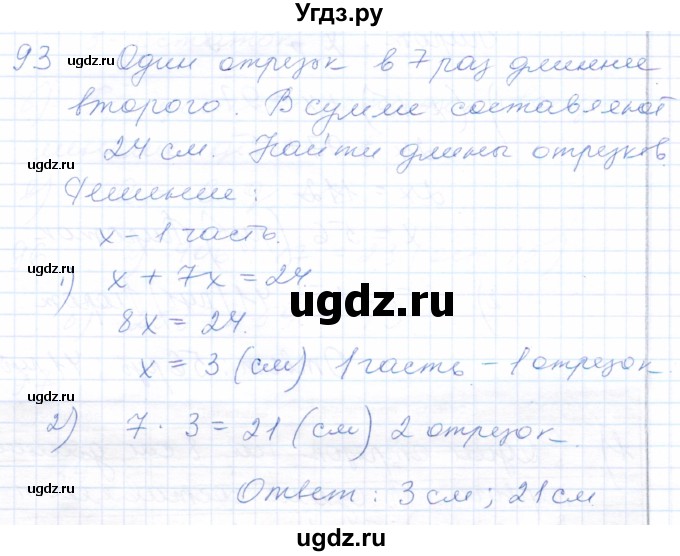 Угдз.ру
93 Один отрезок в 7 раз длиннее
второго. В сумме составляют
24 см. Найти длины отрезков.
Решение:
x – 1 часть.
1) x + 7x = 24.
8x = 24.
x = 3 (см) 1 часть – 1 отрезок.
2) 7 · 3 = 21 (см) 2 отрезок.
Ответ: 3 см; 21 см
ugdz.ru
ugdz.ru
ugdz.ru
ugdz.ru
ugdz.ru
ugdz.ru
ugdz.ru
ugdz.ru
ugdz.ru
ugdz.ru
ugdz.ru